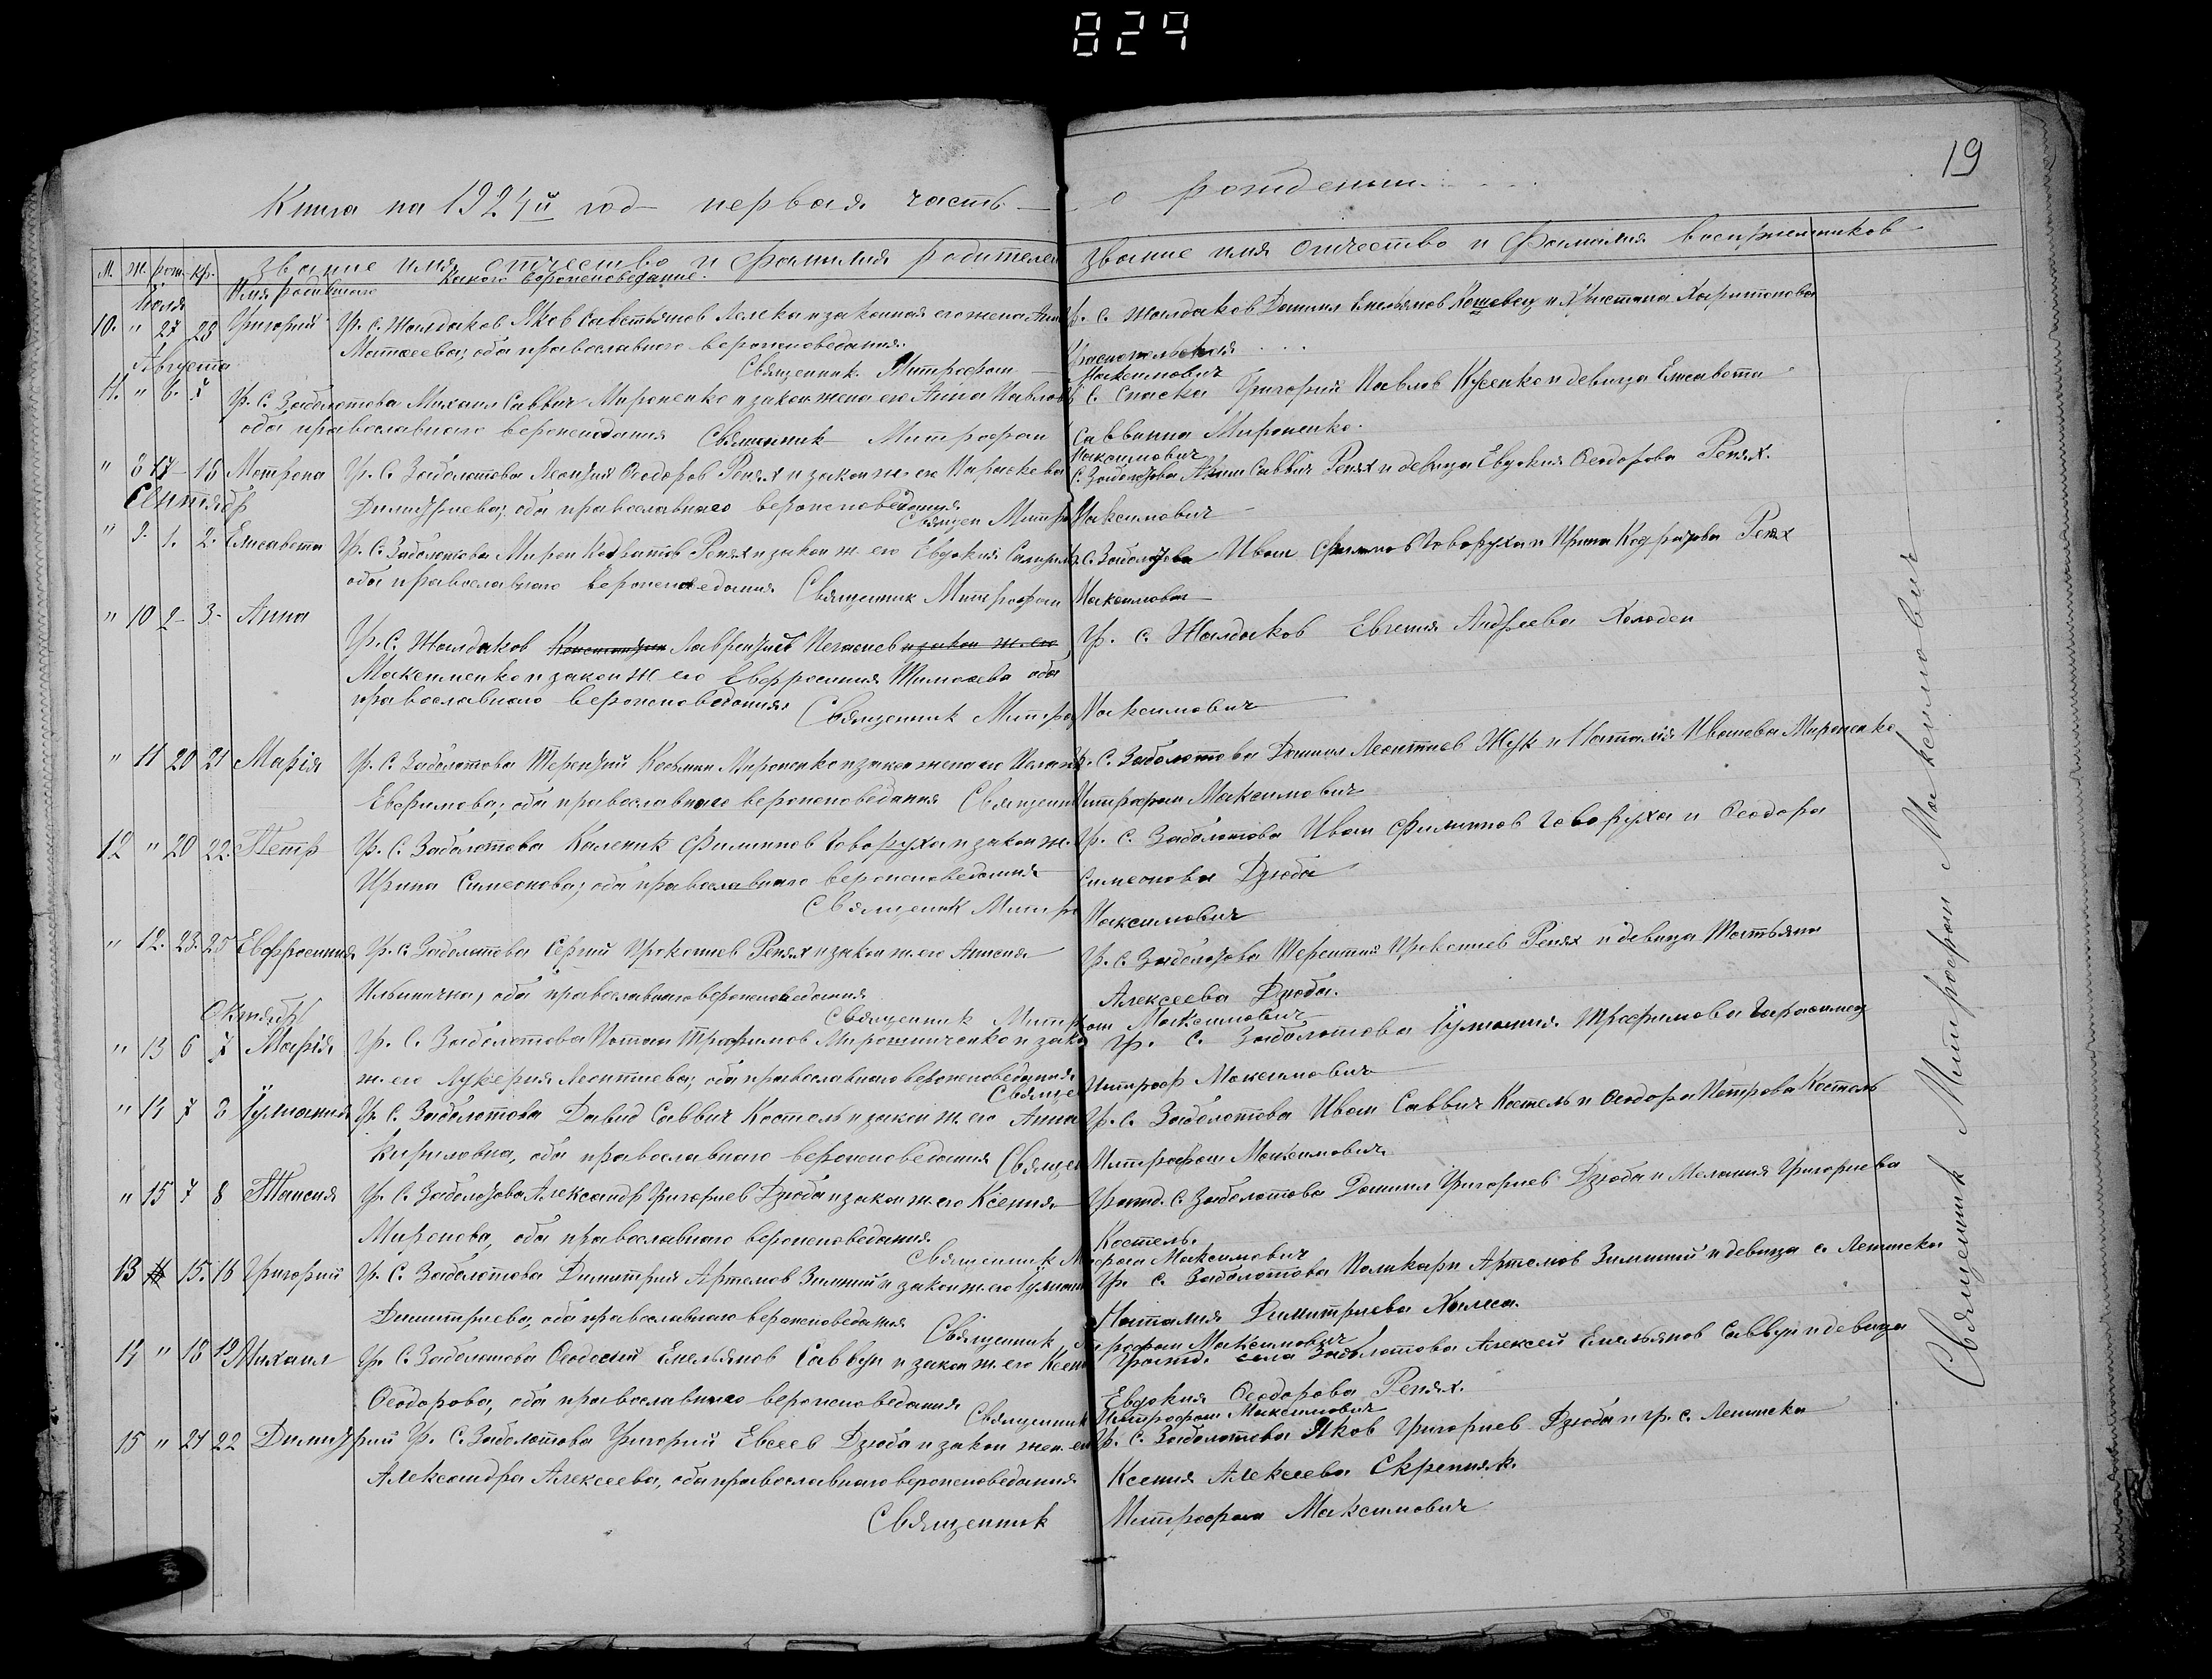 829
19
Книга на 1924й год первая часть о рождении
М. Ж. рож. кр. Звание имя отчество и фамилия родителей
Звание имя отчество и Фамилия восприемников
Имя родившого какого вероисповедания.
Июля
10. " 27 28 Григорий Гр. С. Жолдаков Яков Савельянов Лелека и законная его жена Анна
Гр. с. Жолдаков Даниил Емельянов Кошевец и Христина Харитонова
Матвеева; оба православного вероисповедания.
Августа
Священник Митрофан Максимович
11. " 6. 7 Гр. С. Заболотова Михаил Саввич Мироненко и закон. жена его Анна Павлов
С. Спаска Григорий Павлов Кусенко и девица Елисавета
оба православного вероисповедания Священник Митрофан Максимович
Саввична Мироненко.
" 8 17 18 Мотрона Гр. С. Заболотова Леонтий Феодоров Репях и закон ж. его Параскева
С. Заболотова Саввич Репях и девица Евдокия Феодорова Репях.
Сентябр
Димитриева; оба православного вероисповедания
Священ Митр Максимович
" 9. 1. 2. Елисавета Гр. С. Заболотова Мирон Кодратов Репях и закон ж. его Евдокия
С. Заболотова Иван Филипов Говоруха и Ирина Кодратова Репях
оба православного вероисповедания Священник Митрофан Максимович
" 10 2 3 Анна
Гр. С. Жолдаков Лаврентий
Гр. с. Жолдаков Евгения Андреева Холоден
Максименко и закон ж его Евфросиния Тимофева оба
православного вероисповедания Священник Митро Максимович
" 11 20 21 Мария Гр. С. Заболотова Терентий Косьмин Мироненко и закон жена его
С. Заболотова Даниил Леонтиев Жук и Наталия Иванова Мироненко
Евфимова; оба православного вероисповедания Священни Митрофан Максимович
12 " 20 22. Петр Гр. С. Заболотова Каленик Филиппов Говоруха и закон ж.
Гр. С. Заболотова Иван Филиппов Говоруха и Феодора
Ирина Симеонова; оба православного вероисповедания
Симеонова Дзюба
Священик Митр Максимович
" 12. 23. 25 Евфросиния Гр. С. Заболотова Сергий Прокопиев Репях и закон ж. его Анисия
Гр. С. Заболотова Терентий Прокопиев Репях и девица Татьяна
Ильинична, оба православного вероисповедания
Алексеева Дзюба.
Октябр
Священник Митрофан Максимович
" 13 6 7 Мария Гр. С. Заболотова Потап Трофимов Мирошниченко и зако
Гр. С. Заболотова Иулиания Трофимова Герасимец
ж. его Лукерия Леонтиева; оба православного вероисповедания
Священ Митроф Максимович
" 14 7 8 Иулиания Гр. С. Заболотова Давид Саввич Костель и закон ж. его Анна
Гр. С. Заболотова Иван Саввич Костель и Феодора Петрова Костель
Кириловна, оба православного вероисповедания Священ Митрофан Максимович
" 15 7 8 Таисия Гр. С. Заболотова Александр Григориев Дзюба и закон ж. его Ксения
Гражд. С. Заболотова Даниил Григориев Дзюба и Мелания Григориева
Миронова, оба православного вероисповедания.
Костель.
Священник Митрофан Максимович
13 " 15. 16 Григорий Гр. С. Заболотова Димитрия Артемов Зимний и закон ж. его Иулиан
Гр. С. Заболотова Поликарп Артемов Зимний и девица с. Ленинска
Димитриева, оба православного вероисповедания
Наталия Димитриева Холеса.
Священник Митрофан Максимович
14 " 18 19 Михаил Гр. С. Заболотова Феодосий Емельянов Саввун и закон ж. его Ксен
Гражд. села Заболотова Алексей Емельянов Саввун и девица
Феодорова, оба православного вероисповедания
Евдокия Феодорова Репях.
Священник Митрофан Максимович
15 " 21 22 Димитрий Гр. С. Заболотова Григорий Евсеев Дзюба и закон жен. его
Гр. С. Заболотова Яков Григориев Дзюба и Гр. с. Ленинска
Александра Алексеева, оба православного вероисповедания
Ксения Алексеева Скрепняк.
Священник Митрофан Максимович
Священник Митрофан Максимович